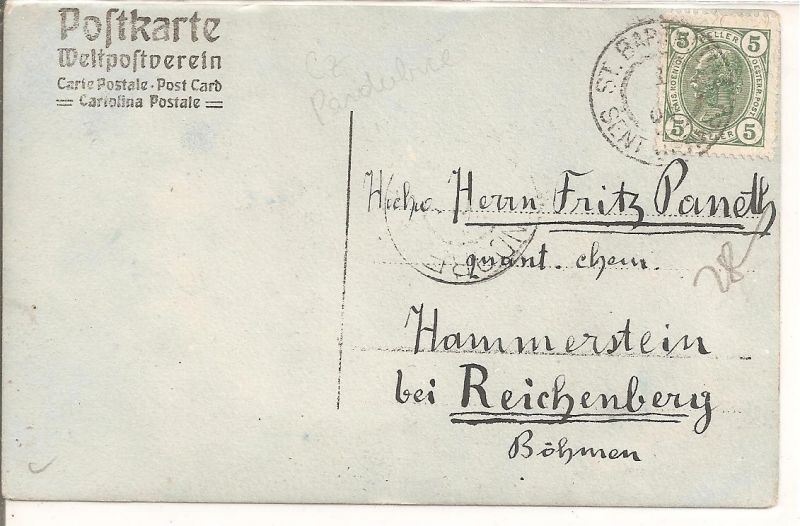 Postkarte
Weltpostverein
Carte Postale · Post Card
Cartolina Postale
Cz
Pardubice
5 HELLER 5
KAIS. KOENIGL. OESTERR. POST.
5 HELLER 5
ST. BAR
Herrn Fritz Paneth
quant. chem.
Hammerstein
bei Reichenberg
Böhmen